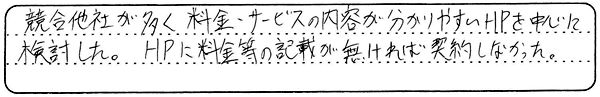 競合他社が多く料金・サービスの内容が分かりやすいHPを中心に
検討した。HPに料金等の記載が無ければ契約しなかった。